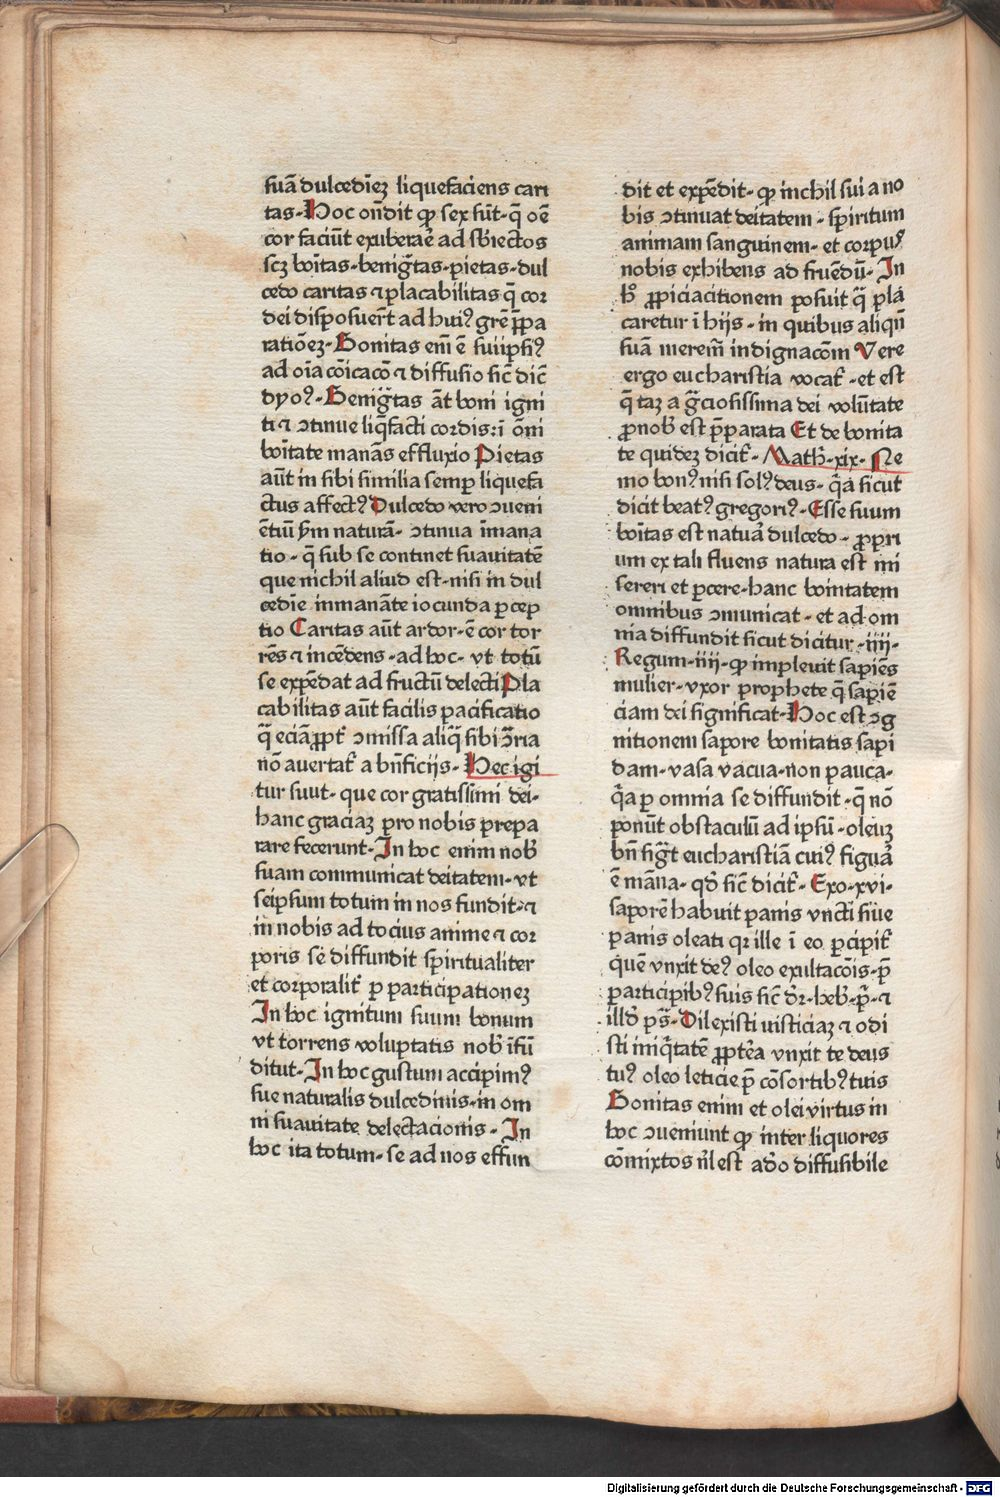 suā dulcediēꝫ liquefaciens cari
tas·Hoc ondit ꝙ sex sūt·q̄ oē
cor faciūt exuberaē ad sbiectos
scꝫ boītas·benigtas·pietas·dul
cedo caritas ⁊ placabilitas q̄ cor
dei disposuert ad huiꝰ gre ꝑpa
ratiōeꝫ·Bonitas em ē suiipsiꝰ
ad oīa cōicacō ⁊ diffusio sic dic
dyoꝰ·Benigtas āt boni igni
ti ⁊ ↄtinue liqfacti cordis:ī ōni
boītate manās effluxio Pietas
aūt in sibi similia semꝑ liquefa
ctus affectꝰ Dulcedo vero ↄueni
ētiū ẜm naturā· ↄtinua īmana
tio·q̄ sub se continet suauitatē
que nichil aliud est·nisi in dul
cedīe inmanāte iocunda ꝑcep
tio Caritas aūt ardor·ē cor tor
rēs ⁊ incēdens·ad hoc·vt totū
se expēdat ad fructū delecti Pla
cabilitas aūt facilis pacificatio
q̄ eciā ꝓpt ↄmissa aliq̄ sibi ↄria
nō auertat a bn̄ficijs·Hec igi
tur suut·que cor gratissimi dei·
hanc graciaꝫ pro nobis prepa
rare fecerunt·In hoc enim nob
suam communicat deitatem·vt
seipsum totum in nos fundit·⁊
in nobis ad tocius anime ⁊ cor
poris se diffundit spiritualiter
et corporalit ꝑ participationeꝫ
In hoc ignitum suum bonum
vt torrens voluptatis nob īfū
ditut·In hoc gustum accipimꝰ
sue naturalis dulcedinis·in om
ni suauitate delectacionis·In
hoc ita totum·se ad nos effun
dit et expēdit·ꝙ inchil sui a no
bis ↄtinuat deitatem·spiritum
animam sanguinem·et corpus
nobis exhibens ad fruēdū·In
h ꝓpiciacitionem posuit q̄ pla
caretur ī hijs·in quibus aliqn̄
suā merem̄ indignacōm Vere
ergo eucharistia vocat·et est
q̄ taꝫ a gciosissima dei volūtate
ꝓnob est p̄parata Et de bonita
te quideꝫ dicit·Math·xix·Ne
mo bonꝰ nisi solꝰ deus·qa sicut
dicit beatꝰ gregoriꝰ·Esse suum
boītas est natua dulcedo·ꝓpri
um ex tali fluens natura est mi
sereri et ꝑcere·hanc boinitatem
omnibus ↄmunicat·et ad om
nia diffundit sicut dicitur·iiii·
Regum·iiii·ꝙ impleuit sapiēs
mulier·vxor prophete q̄ sapiē
ciam dei significat·Hoc est ↄg
nitionem sapore bonitatis sapi
dam·vasa vacua·non pauca·
qa ꝑ omnia se diffundit·q̄ nō
ponūt obstaculū ad ipsū·oleuꝫ
bn̄ sigt eucharistiā cuiꝰ figua
ē māna·qd sic dicit·Exo·xvi·
saporē habuit panis vncti siue
panis oleati qꝛ ille ī eo ꝑcipit
quē vnxit deꝰ oleo exultacōis·p̄
participibꝰ suis sic dr·heb·p̄·⁊
illd ps̄·Dilexisti iusticiaꝫ ⁊ odi
sti iniqtatē ꝓptea vnxit te deus
tuꝰ oleo leticie p̄ cōsortibꝰ tuis
Bonitas enim et olei virtus in
hoc ↄueniunt ꝙ inter liquores
cōmixtos nl est ado diffusibile
Digitalisierung gefördert durch die Deutsche Forschungsgemeinschaft - DFG